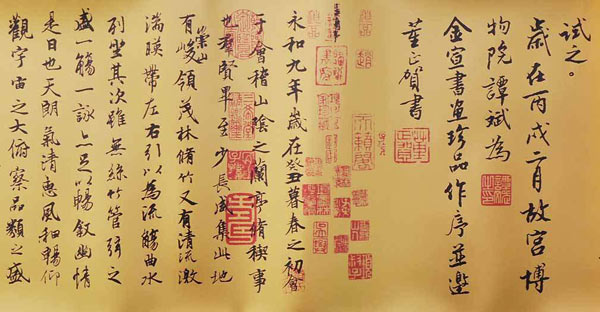 試之。
歲在丙戌二月故宮博
物院譚斌為
金宣書画珍品作序並邀
董正賀書
永和九年歲在癸丑暮春之初會
于會稽山陰之蘭亭脩稧事
也羣賢畢至少長咸集此地
有崇山峻領茂林脩竹又有清流激
湍暎帶左右引以為流觴曲水
列坐其次雖無絲竹管弦之
盛一觴一詠亦足以暢叙幽情
是日也天朗氣清惠風和暢仰
觀宇宙之大俯察品類之盛